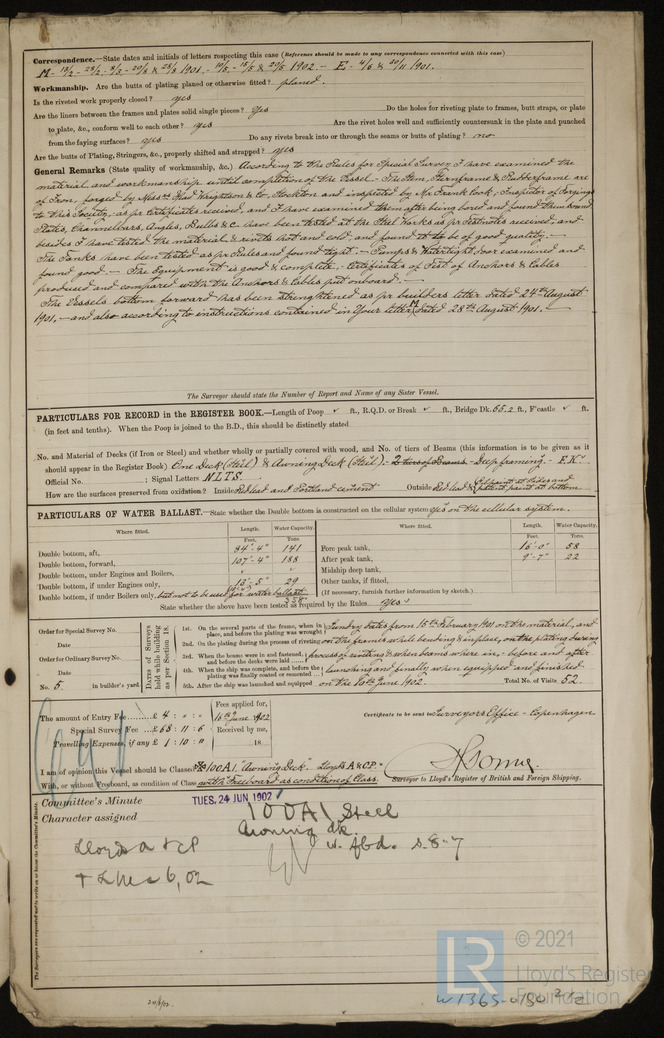 Correspondence.—State dates and initials of letters respecting this case (Reference should be made to any correspondence connected with this case)
1902 — E — 4/6 & 20/11 1901.
Workmanship. Are the butts of plating planed or otherwise fitted? planed.
Is the riveted work properly closed? yes
Are the liners between the frames and plates solid single pieces? yes Do the holes for riveting plate to frames, butt straps, or plate
to plate, &c., conform well to each other? yes Are the rivet holes well and sufficiently countersunk in the plate and punched
from the faying surfaces? yes Do any rivets break into or through the seams or butts of plating? no
Are the butts of Plating, Stringers, &c., properly shifted and strapped? yes
General Remarks (State quality of workmanship, &c.) According to the Rules for Special Survey I have examined the
material and workmanship until completion of the Vessel — The Stem, Sternframe & Rudderframe are
of Iron, forged by Messrs Head Wrightson & Co, Stockton and inspected by Mr Frank Cook, Inspector of Forgings
to this Society, as pr certificates received, and I have examined them after being bored and found them sound
Plates, Channelbars, Angles, Bulbs &c have been tested at the Steel Works as pr Footnotes received, and
besides I have tested the material & rivets hot and cold, and found it to be of good quality. —
The Tanks have been tested as pr Rules and found tight. — Pumps & Watertight door examined and
found good. — The Equipment is good & complete, — Certificates of Test of Anchors & Cables
produced and compared with the Anchors & Cables put onboard. —
The Vessels bottom forward has been strenghtened as pr builders letter dated 24th August
1901. — and also according to instructions contained in Your letter M dated 28th August 1901. —
The Surveyor should state the Number of Report and Name of any Sister Vessel.
PARTICULARS FOR RECORD in the REGISTER BOOK.—Length of Poop ✓ ft., R.Q.D. or Break ✓ ft., Bridge Dk. 55.2 ft., F'castle ✓ ft.
(in feet and tenths). When the Poop is joined to the B.D., this should be distinctly stated
No. and Material of Decks (if Iron or Steel) and whether wholly or partially covered with wood, and No. of tiers of Beams (this information is to be given as it
should appear in the Register Book) One Deck (Steel) & Awning Deck (Steel). — 2 tiers of Beams — Deep framing. — F.K.
Official No. ; Signal Letters N.L.T.S.
How are the surfaces preserved from oxidation? Inside Red lead and Portland cement Outside Red lead & Oilpaint at sides and patent paint at bottom
PARTICULARS OF WATER BALLAST.—State whether the Double bottom is constructed on the cellular system yes on the cellular system.
Where fitted. Length. Water Capacity. Where fitted. Length. Water Capacity.
Feet. Tons. Feet. Tons.
Double bottom, aft, 84'-4" 141 Fore peak tank, 16'-0" 58
Double bottom, forward, 107'-4" 188 After peak tank, 9'-7" 22
Double bottom, under Engines and Boilers, Midship deep tank,
Double bottom, if under Engines only, 13'-5" 29 Other tanks, if fitted,
Double bottom, if under Boilers only, but not to be used for water ballast (If necessary, furnish further information by sketch.)
358
State whether the above have been tested as required by the Rules yes.
Order for Special Survey No.
Date
Order for Ordinary Survey No.
Date
No. 5. in builder's yard
Dates of Surveys held while building as per Section 18.
1st. On the several parts of the frame, when in place, and before the plating was wrought Sundry dates from 15th February 1901 on the material, and
2nd. On the plating during the process of riveting on the frames while bending & in place, on the plating during
3rd. When the beams were in and fastened, and before the decks were laid process of riveting & when beams where in, — before and after
4th. When the ship was complete, and before the plating was finally coated or cemented launching and finally when equipped and finished
5th. After the ship was launched and equipped on the 16th June 1902. Total No. of Visits 52.
The amount of Entry Fee £ 4 : 0 : 0 Fees applied for,
Special Survey Fee £ 68 : 11 : 6 16th June 1902
Travelling Expenses, if any £ 1 : 10 : 0 Received by me,
18
Certificate to be sent to Surveyors Office — Copenhagen
I am of opinion this Vessel should be Classed 100A1, "Awning Deck" Lloyds A & CP.
With, or without Freeboard, as condition of Class with Freeboard as condition of Class.
Surveyor to Lloyd's Register of British and Foreign Shipping.
Committee's Minute TUES. 24 JUN 1902
Character assigned 100A1 Steel
Awning dk.
w. fbd.
Lloyds A & CP
+ LMC 6,02
© 2021
Lloyd's Register
Foundation